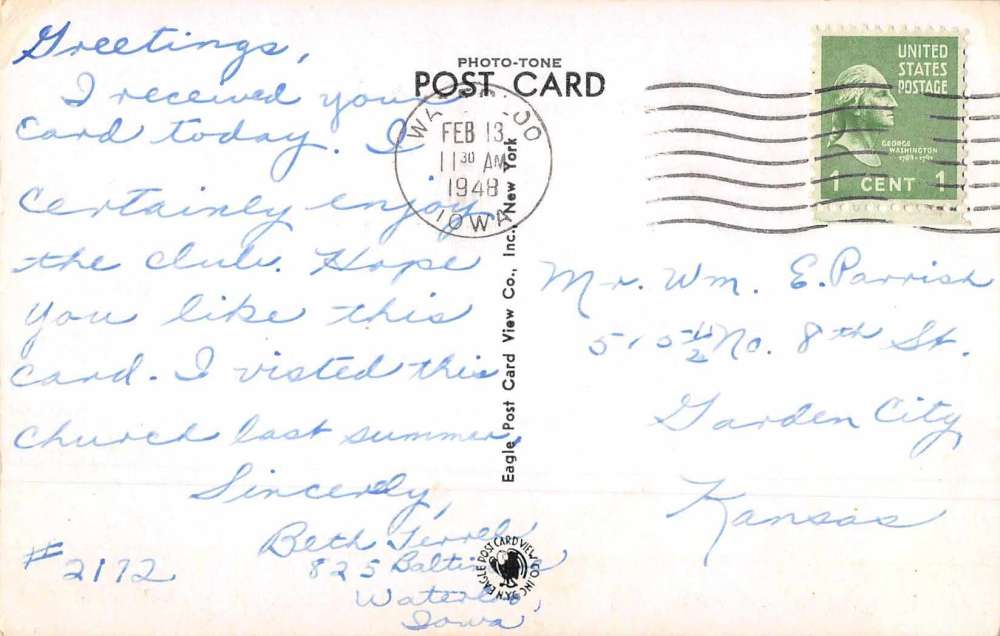 Greetings,
I received your
card today. I
certainly enjoy
the club. Hope
you like this
card. I visted this
church last summer,
Sincerely,
Beth Terrel
825 Baltimore
Waterloo,
Iowa
#2172
PHOTO-TONE
POST CARD
WATERLOO
FEB 13
11 30 AM
1948
IOWA
Eagle Post Card View Co., Inc., New York
EAGLE POST CARD VIEW CO. INC.
UNITED
STATES
POSTAGE
GEORGE
WASHINGTON
1 CENT 1
Mr. Wm. E. Parrish
515½ No. 8th St.
Garden City,
Kansas